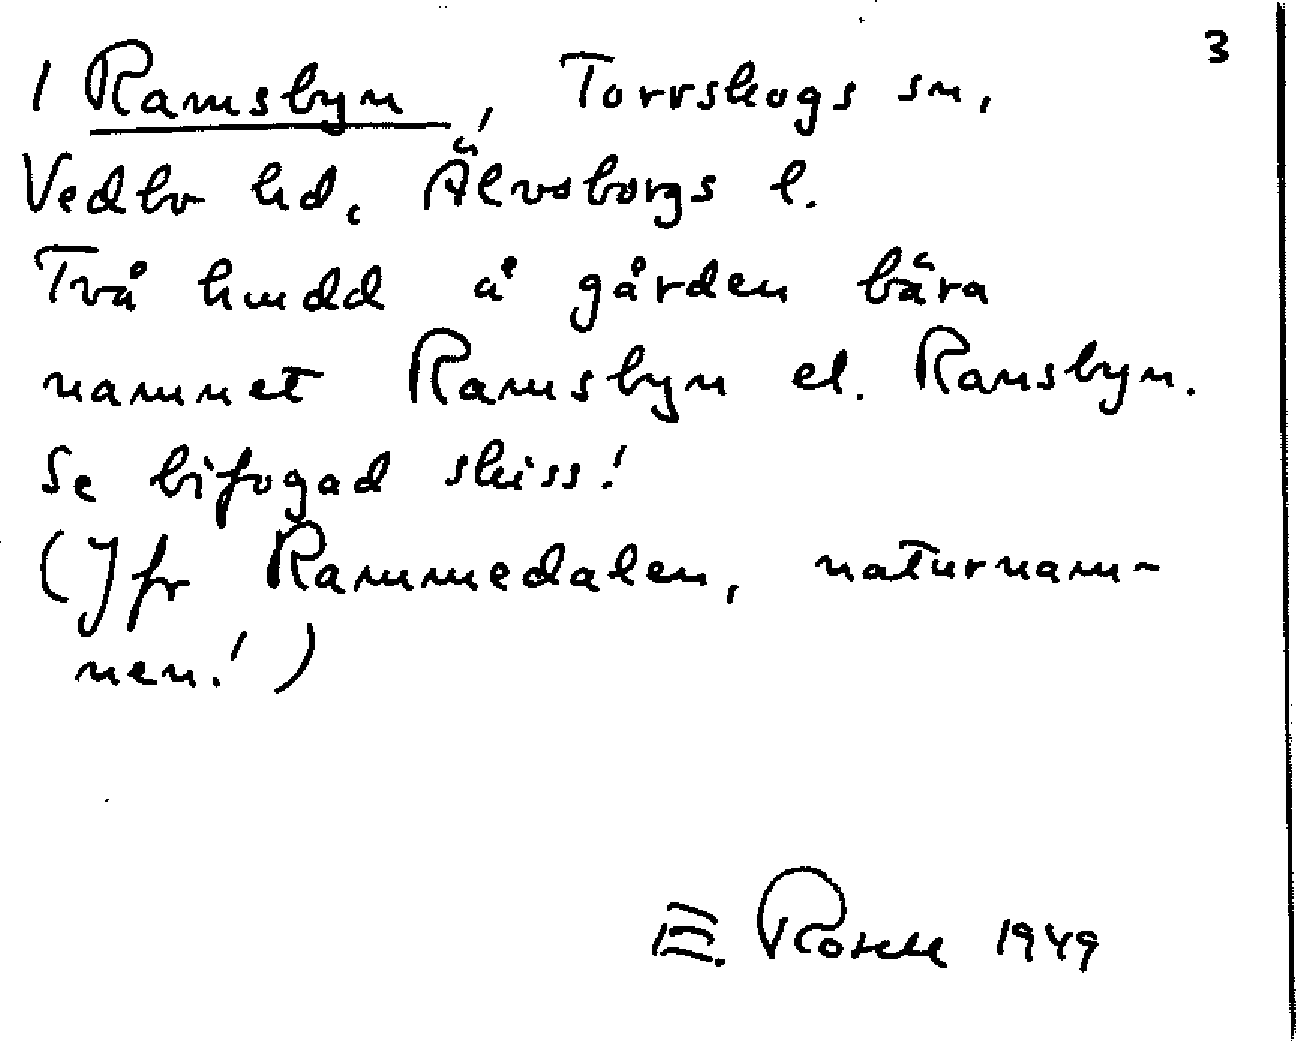 3
1 Ramsbyn, Torrskogs sn,
Vedbo hd, Älvsborgs l.
Två hmdd å gården bära
namnet Ramsbyn el. Ransbyn.
Se bifogad skiss!
(Jfr Rammedalen, naturnam-
nen!)
E. 1949